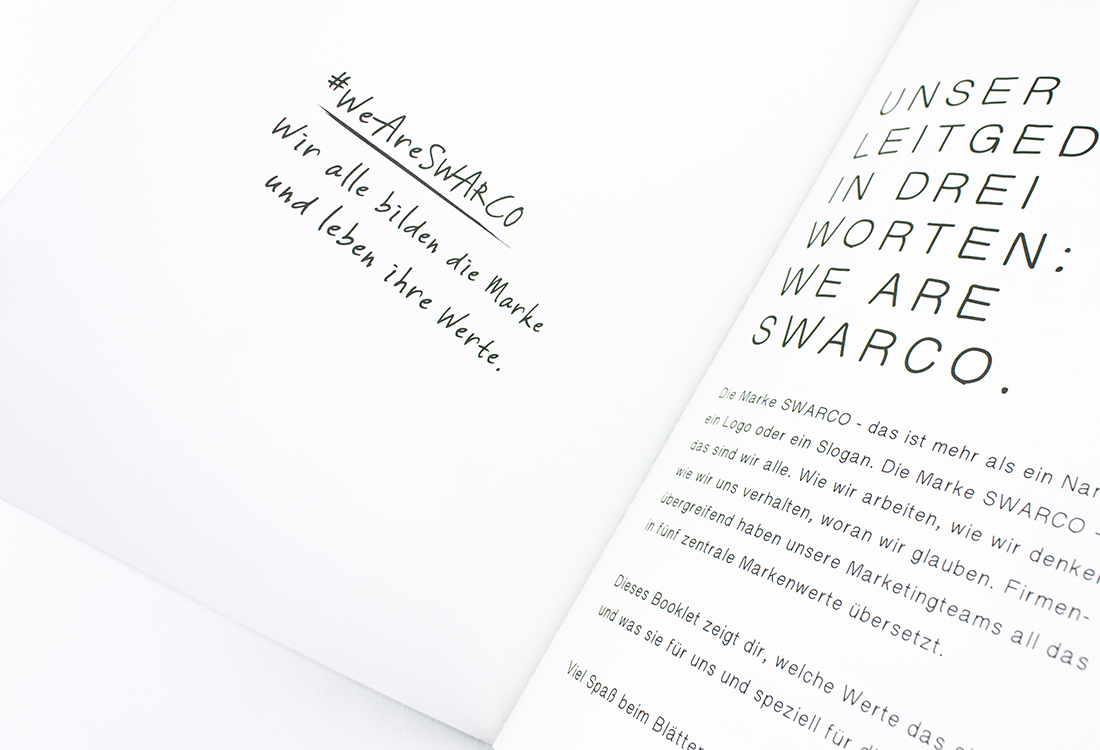 #WeAreSWARCO
Wir alle bilden die Marke
und leben ihre Werte.
UNSER
LEITGED
IN DREI
WORTEN:
WE ARE
SWARCO.
Die Marke SWARCO - das ist mehr als ein Nar
ein Logo oder ein Slogan. Die Marke SWARCO -
das sind wir alle. Wie wir arbeiten, wie wir denken
wie wir uns verhalten, woran wir glauben. Firmen-
übergreifend haben unsere Marketingteams all das
in fünf zentrale Markenwerte übersetzt.
Dieses Booklet zeigt dir, welche Werte das
und was sie für uns und speziell für
Viel Spaß beim Blätter